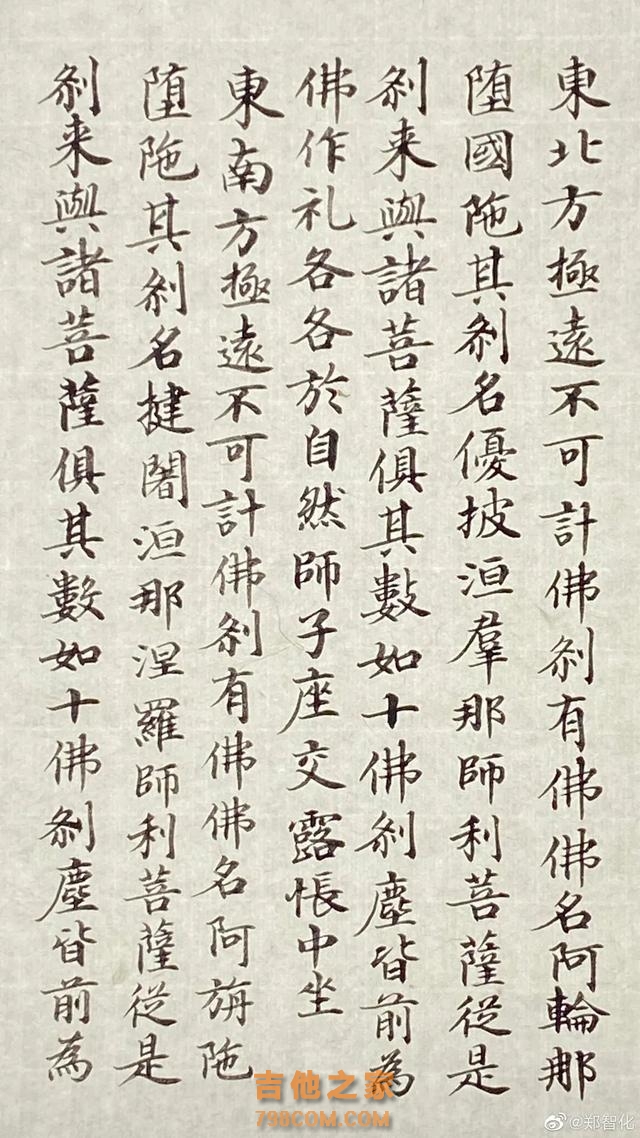 東北方極遠不可計佛剎有佛佛名阿輪那
堕國陁其剎名優披洹羣那師利菩薩從是
剎来與諸菩薩俱其數如十佛剎塵皆前為
佛作礼各各於自然師子座交露帳中坐
東南方極遠不可計佛剎有佛佛名阿旃陁
堕陁其剎名揵闍洹那涅羅師利菩薩從是
剎来與諸菩薩俱其數如十佛剎塵皆前為
吉他之家
798COM.COM
@郑智化